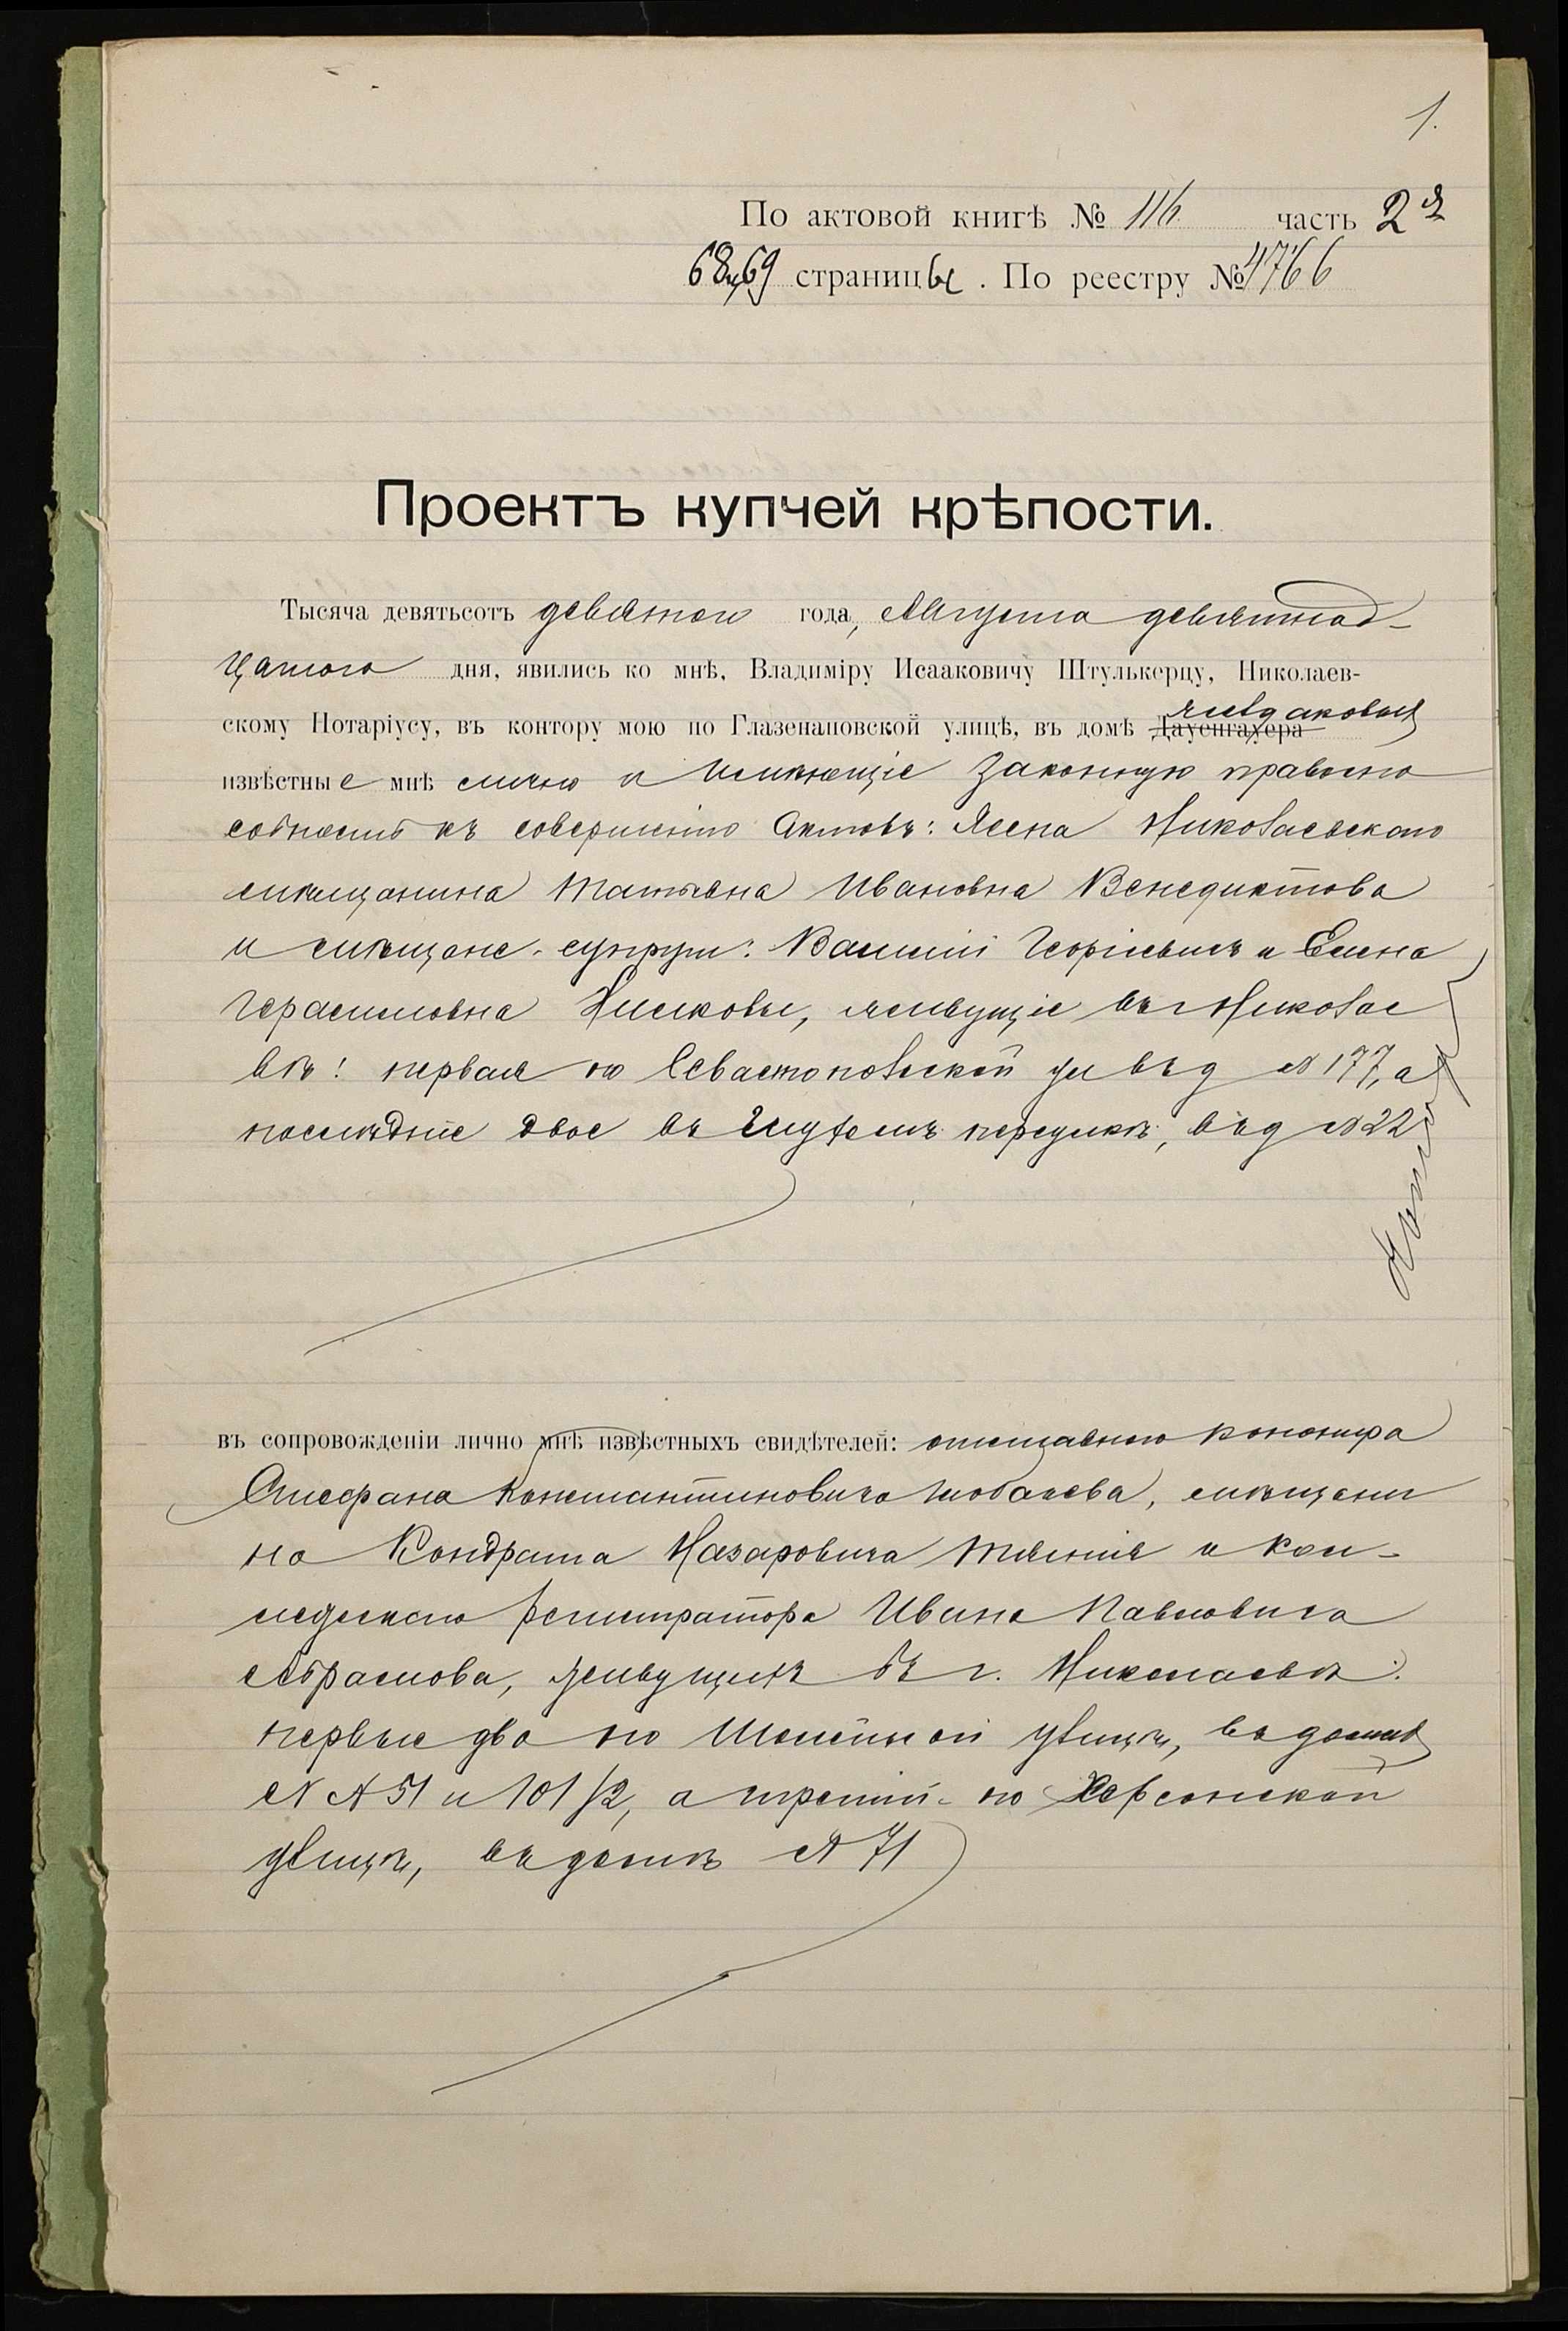 1.
По актовой книгѣ № 116 часть 2я
68 и 69 страницы. По реестру № 4766
Проектъ купчей крѣпости.
Тысяча девятьсотъ девятого года, Августа девятнад-
цатого дня, явились ко мнѣ, Владиміру Исааковичу Штулькерцу, Николаев-
скому Нотаріусу, въ контору мою по Глазенаповской улицѣ, въ домѣ Дауенгауера
извѣстные мнѣ лично и имѣющіе законную правоспо
собность къ совершенію актовъ: Жена Николаевскаго
мѣщанина Татьяна Ивановна Венедиктова
и мѣщане-супруги: Василій Георгіевичъ и Елена
Герасимовна живущіе въ г Николае
вѣ: первая по Севастопольской ул въ д № 177, а
послѣдніе двое въ переулкѣ, въ д № 22
въ сопровожденіи лично мнѣ извѣстныхъ свидѣтелей: отставного канонира
Стефана Константиновича мѣщани
на Кондрата Назаровича и Кол-
лежскаго регистратора Ивана Павловича
Абрамова, живущихъ въ г. Николаевѣ:
первые два по улицѣ, въ домахъ
№ № 51 и 101/2, а третій - по Херсонской
улицѣ, въ домѣ № 71